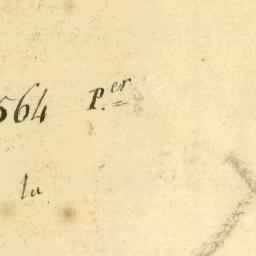 564 P.er
la